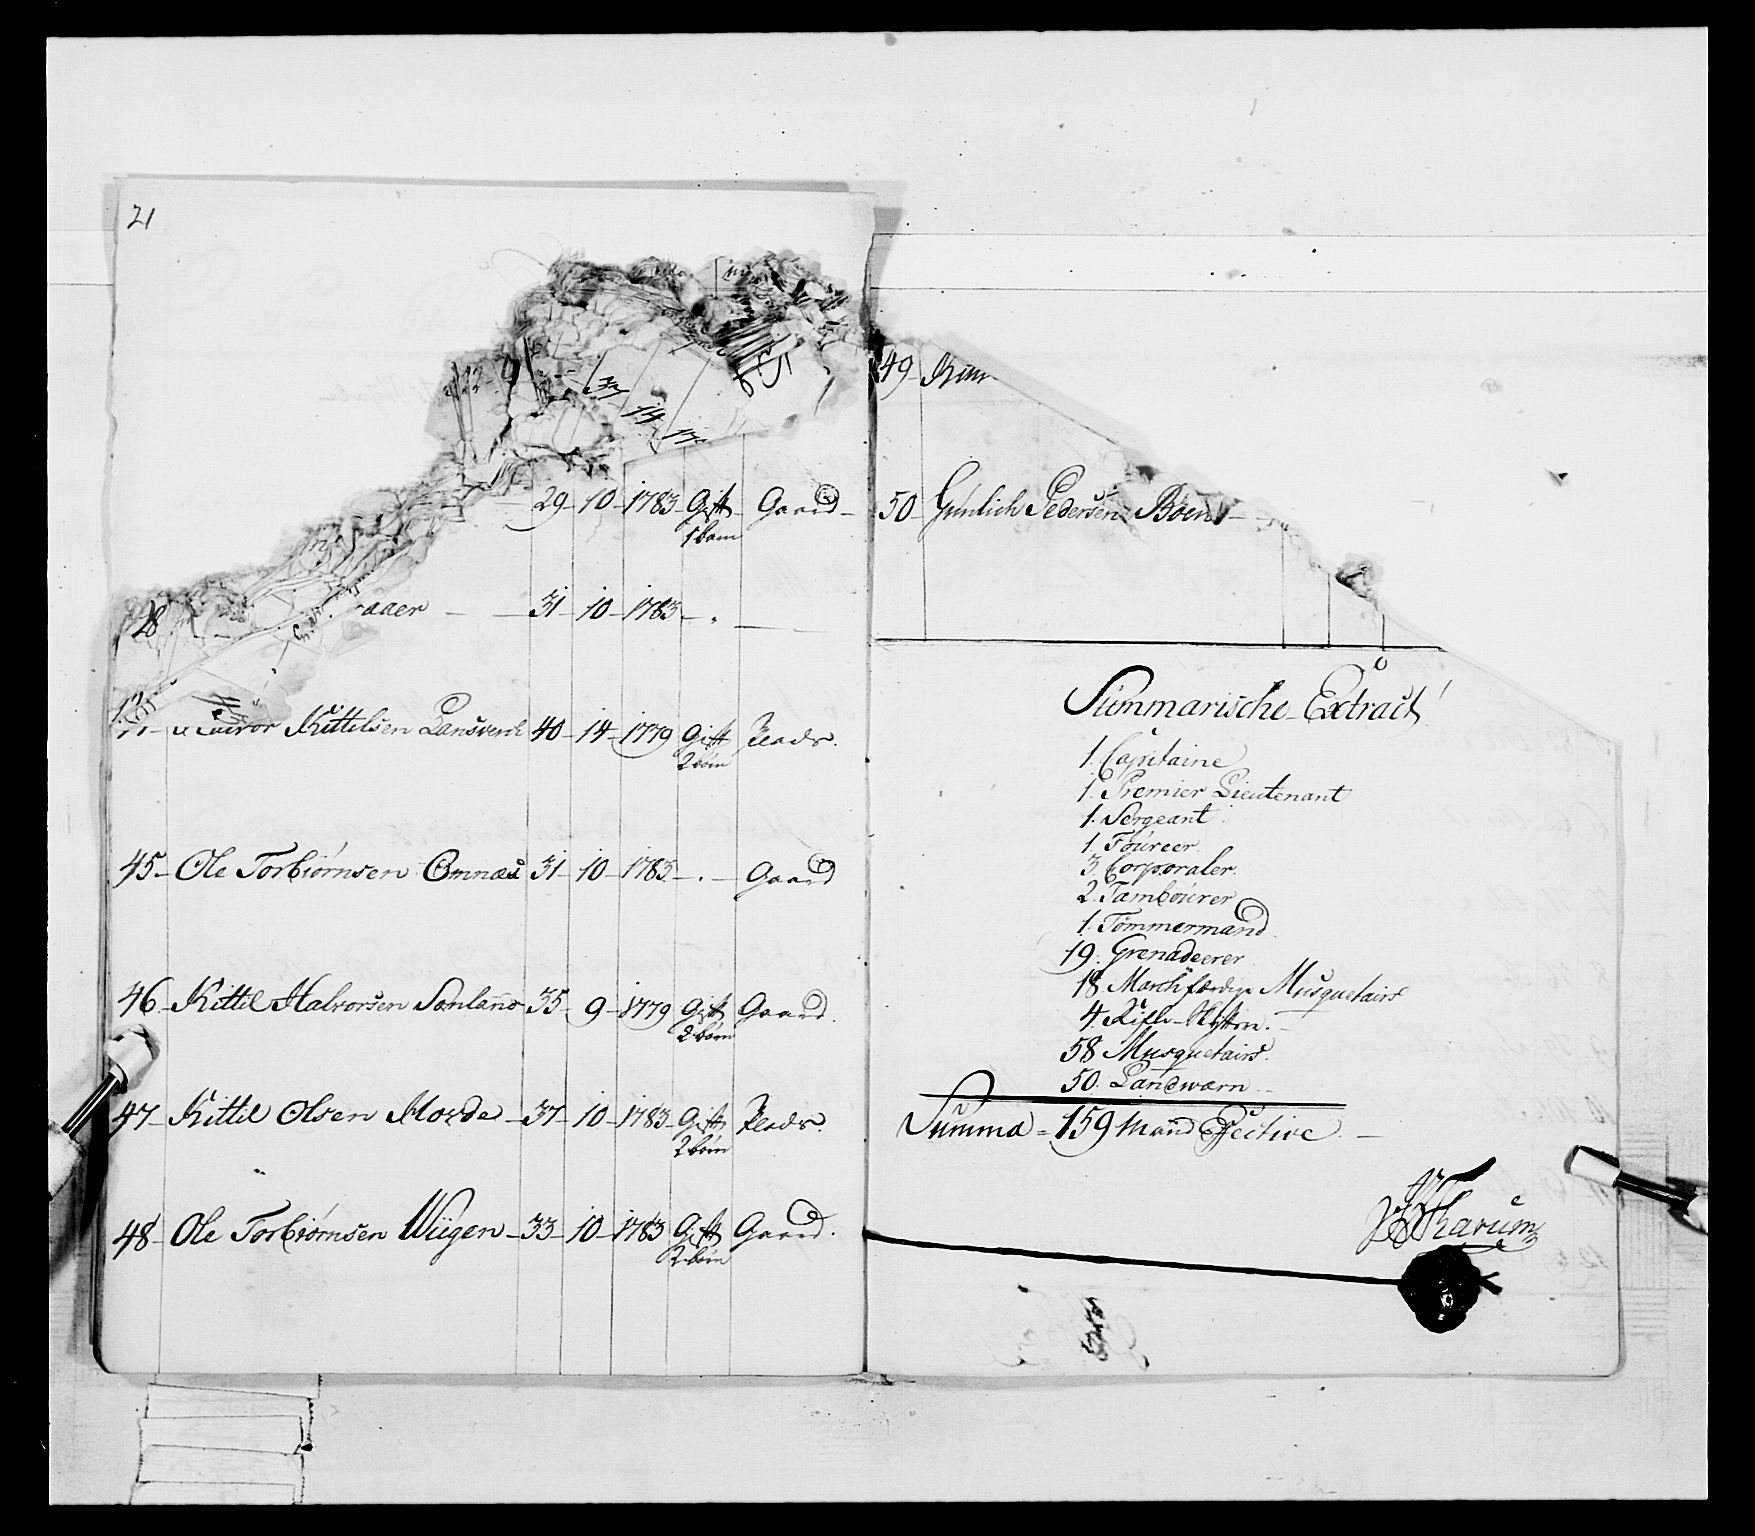 21
33 14 17
29 - 10 - 1783 - Gift - Gaard -
1 barn
28 aaer - 31 - 10 - 1783 - . -
Kittelsen Lansverck 40 - 14 - 1779 Gift Plads.
2 børn
45 - Ole Torbiørnsen Omnæs 31 - 10 - 1783 - . - Gaard
46 - Kittil Halvorsen Sanland 35 - 9 - 1779 Gift Gaard
2 børn
47 - Kittil Olsen Moxde - 37 - 10 - 1783 - Gift Plads.
2 børn
48 - Ole Torbiørnsen Wiigen - 33 - 10 - 1783 Gift Gaard.
2 børn
49
50 - Gunlich Pedersen Bøen -
Summarische Extract
1. Capitaine
1. Premier Lieutenant
1. Sergeant.
1. Foureer.
3. Corporaler.
2. Tambourer
1. Tømmermand
19. Grenadeerer
18. Marchfærdige Musquetairs
4. Rifle-Skytten. -
58 Musquetairs.
50. Landwærn. -
Summa = 159 Mand Effective. -